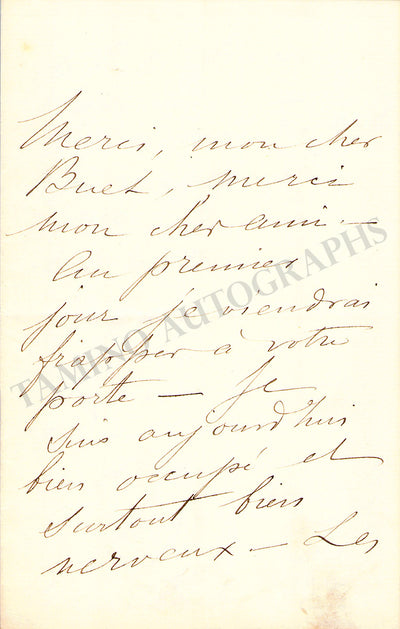 Merci, mon cher
Buet, merci
mon cher ami. —
Au premier
jour je viendrai
frapper à votre
porte — Je
suis aujourd'hui
bien occupé et
surtout bien
nerveux — Les
TAMINO AUTOGRAPHS